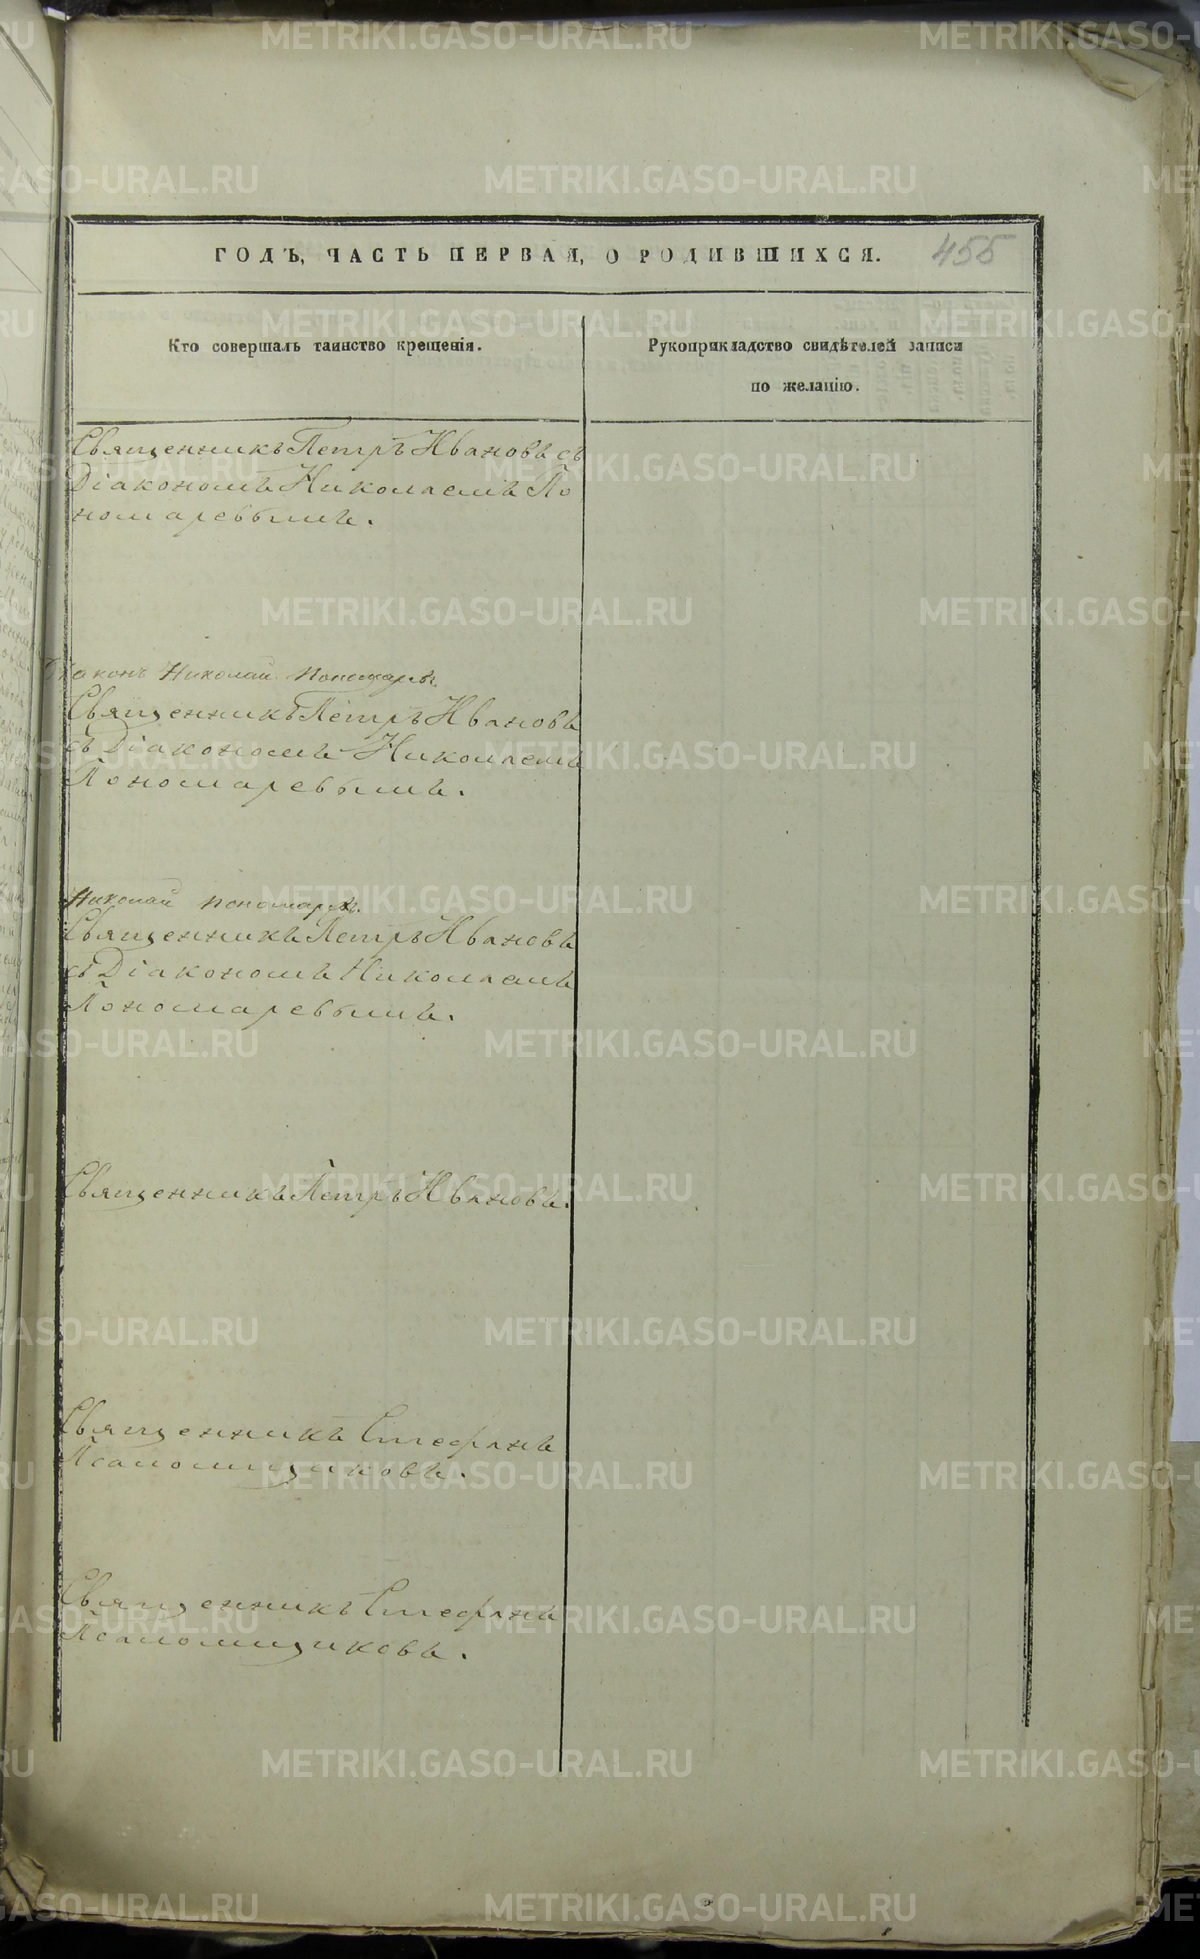 ГОДЪ, ЧАСТЬ ПЕРВАЯ, О РОДИВШИХСЯ. 455
Кто совершалъ таинство крещенія.
Рукоприкладство свидѣтелей записи
по желанію.
Священникъ Петръ Ивановъ съ
Діакономъ Николаемъ По
номаревымъ.
Николай Пономаревъ
Священникъ Петръ Ивановъ
съ Діакономъ Николаемъ
Пономаревымъ.
Николай Пономаревъ.
Священникъ Петръ Ивановъ
съ Діакономъ Николаемъ
Пономаревымъ.
Священникъ Петръ Ивановъ.
Священникъ Стефанъ
Псаломщиковъ.
Священникъ Стефанъ
Псаломщиковъ.
METRIKI.GASO-URAL.RU